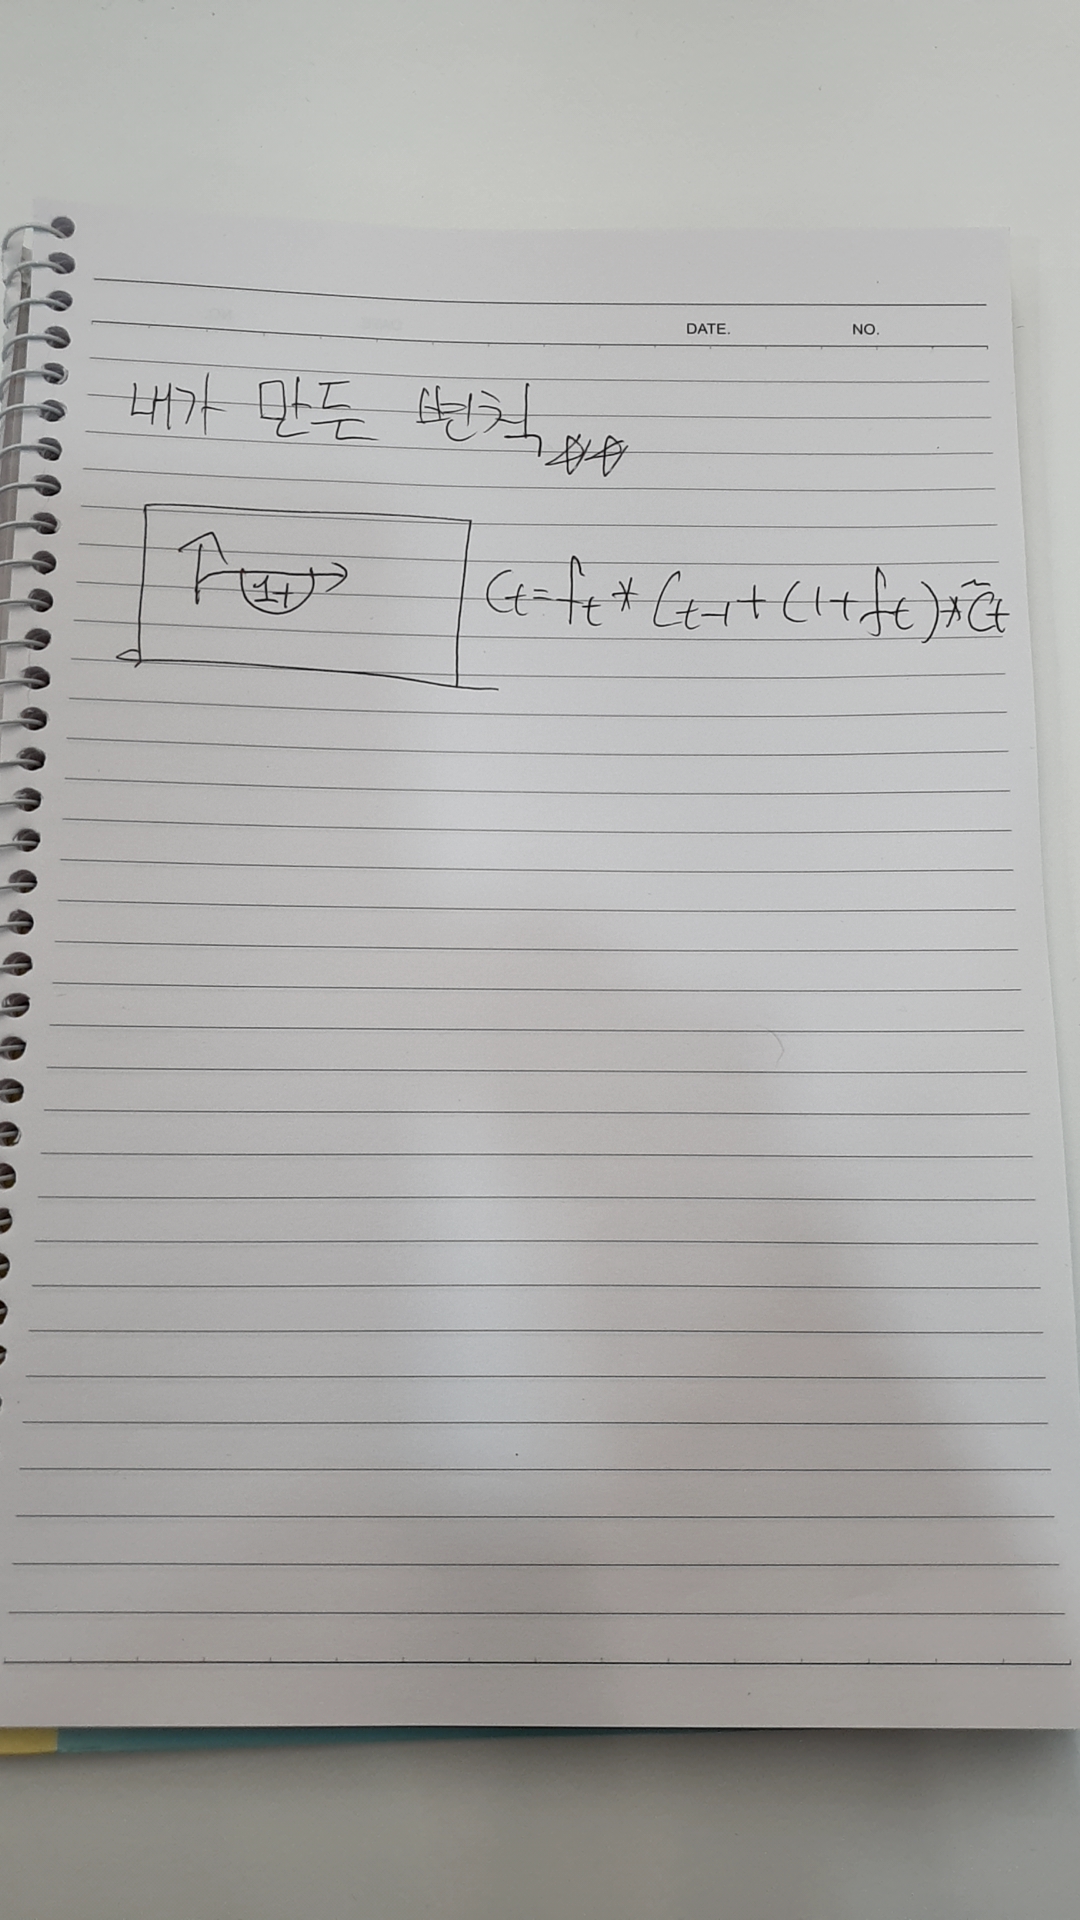 DATE. NO.
내가 만든 변칙☆☆
1+
Ct=ft*Ct-1+(1+ft)*C̃t